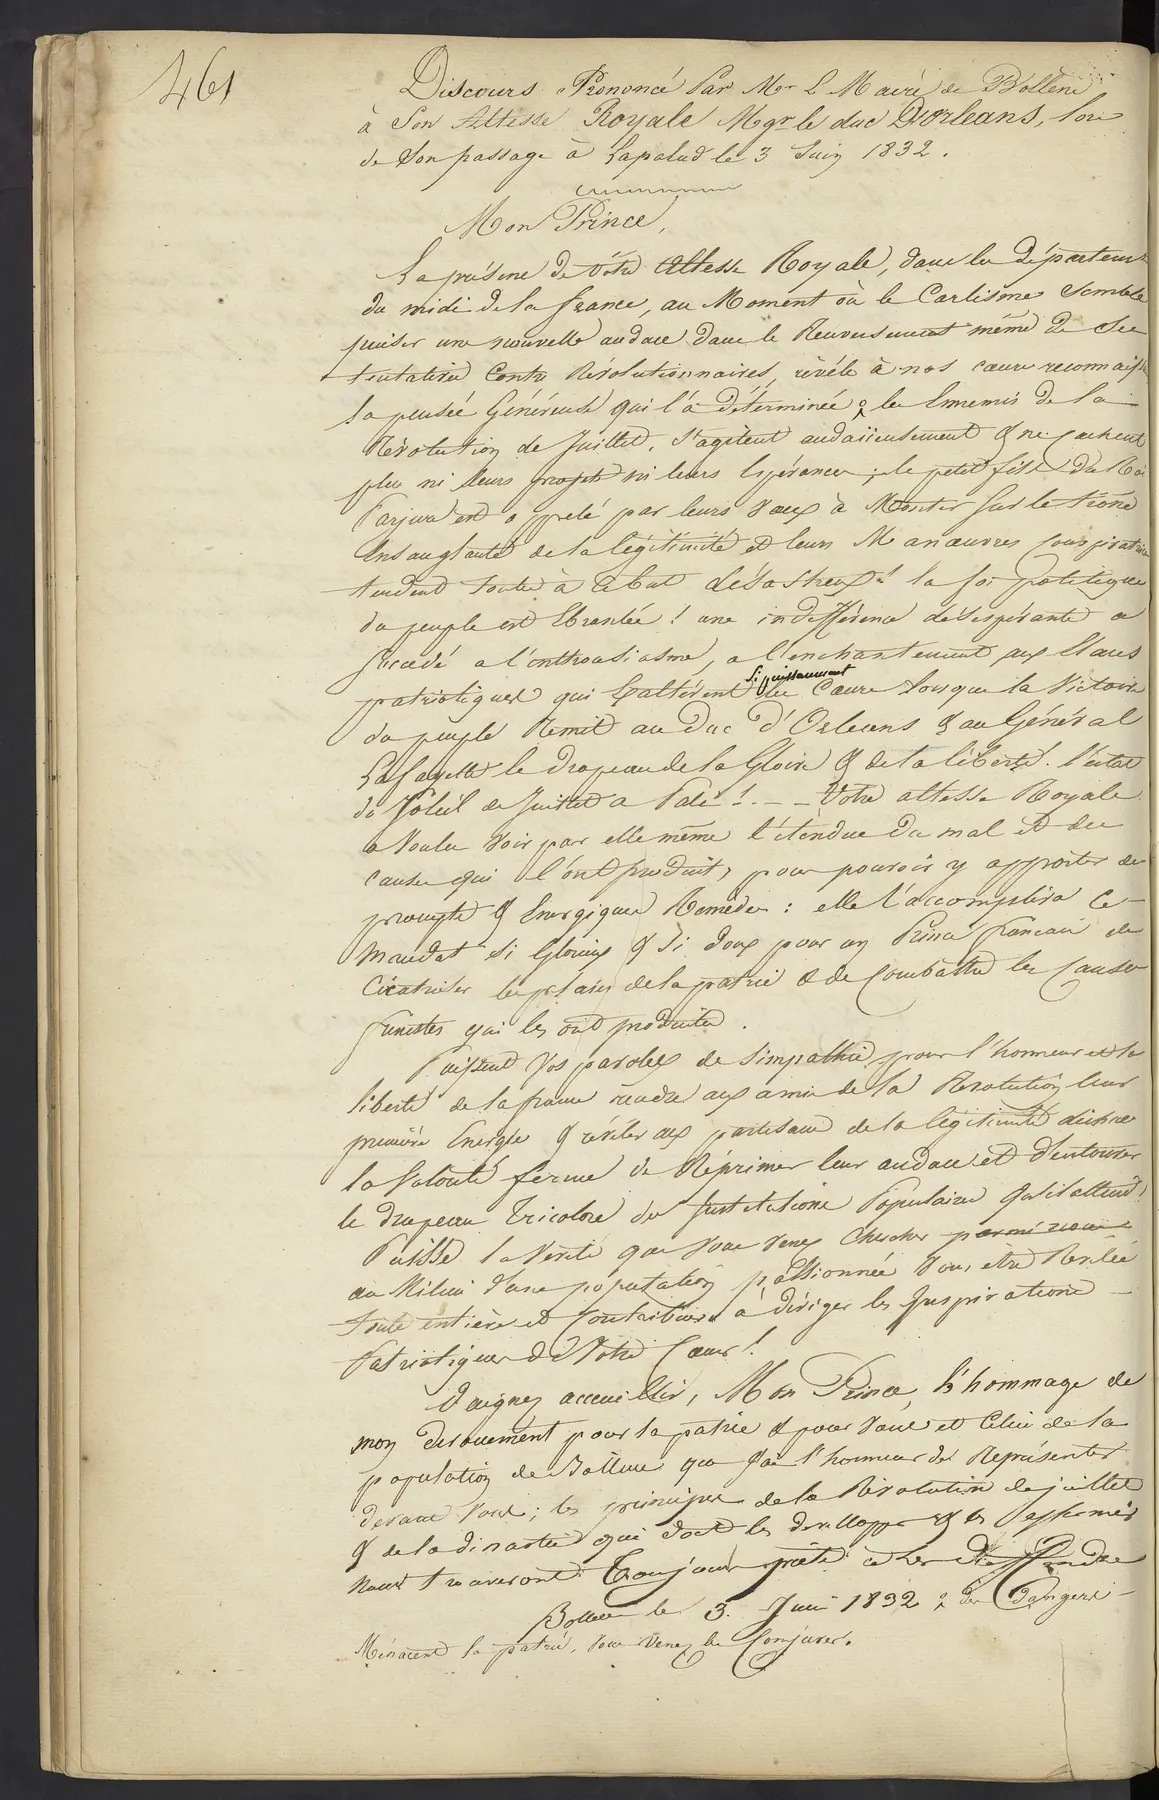 461
Discours Prononcé Par Mr L Maire de Bollene
à Son Altesse Royale Mgr le duc D'orleans, lors
de Son passage à Lapalud le 3 Juin 1832.
Mon Prince,
La présence de Votre Altesse Royale, dans les départemens
du midi de la france, au Moment où le Carlisme Semble
puiser une nouvelle audace dans le Renversement même de Ses
tentatives Contre Révolutionnaires, révèle à nos cœurs reconnaiss
la pensée Généreuse qui l'à déterminée les Ennemis de la
Révolution de Juillet, s'agitent audacieusement & ne cachent
plus ni leurs projets ni leurs Espérances ; le petit fils du Roi
Parjure est appelé par leurs vœux à Monter Sur le trône
Ensanglanté de la légitimité et leurs Manœuvres conspiratrices
tendent toutes à ce but désastreux ! la foi politique
du peuple est Ebranlée ! une indifférence désespérante a
succédé a l'enthousiasme, a l'enchantement aux Elans
patriotiques qui Exaltèrent si puissamment les Cœurs lorsque la Victoire
du peuple Remit au Duc d'Orleans & au Général
Lafayette le drapeau de la Gloire & de la liberté ! l'éclat
du Soleil de Juillet a Pali ! - - Votre altesse Royale
a Voulu Voir par elle même l'étendue du mal et des
causes qui l'ont produit, pour pouvoir y apporter de
prompts & Energiques Remèdes : elle l'accomplira Ce
mandat Si Glorieux & Si doux pour un Prince français de
Cicatriser les plaies de la patrie & de Combattre les Causes
funestes qui les ont produites.
Puissent Vos paroles de Simpathie pour l'honneur et la
liberté de la france rendre aux amis de la Révolution leur
première Energie & révéler aux partisans de la légitimité déchue
la Volonté ferme de Réprimer leur audace et d'entourer
le drapeau tricolore des Institutions Populaires qu'il attend,
Puisse la Vérité que vous venez Chercher parmi nous
au Milieu d'une population passionnée Vous etre Révélée
toute entière et Contribuer à diriger les Inspirations
Patriotiques de Votre Cœur !
Daignez accueillir, Mon Prince, l'hommage de
mon devouement pour la patrie & pour Vous et Celui de la
population de Bollene que J'ai l'honneur de Représenter
devant Vous ; les principes de la Révolution de juillet
& de la dinastie qui doit les developper & les affermir
nous trouveront Toujours prêts à les deffendre
Bollene le 3. Juin 1832 des Dangers
Ménacent la patrie, Vous Venez les Conjurer.